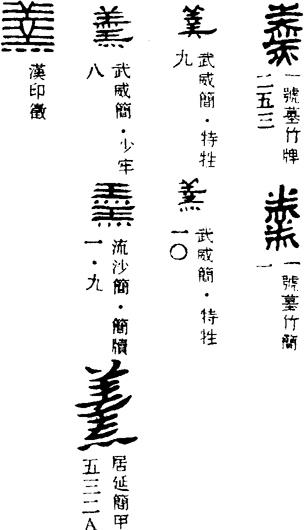 一號墓竹牌
二五三
一號墓竹簡
一
武威簡・特牲
九
武威簡・特牲
一〇
武威簡・少牢
八
流沙簡・簡牘
一・九
居延簡甲
五三二A
漢印徵